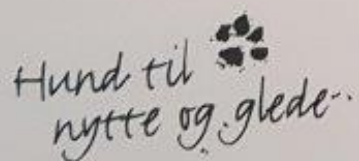 Hund til
nytte og glede..